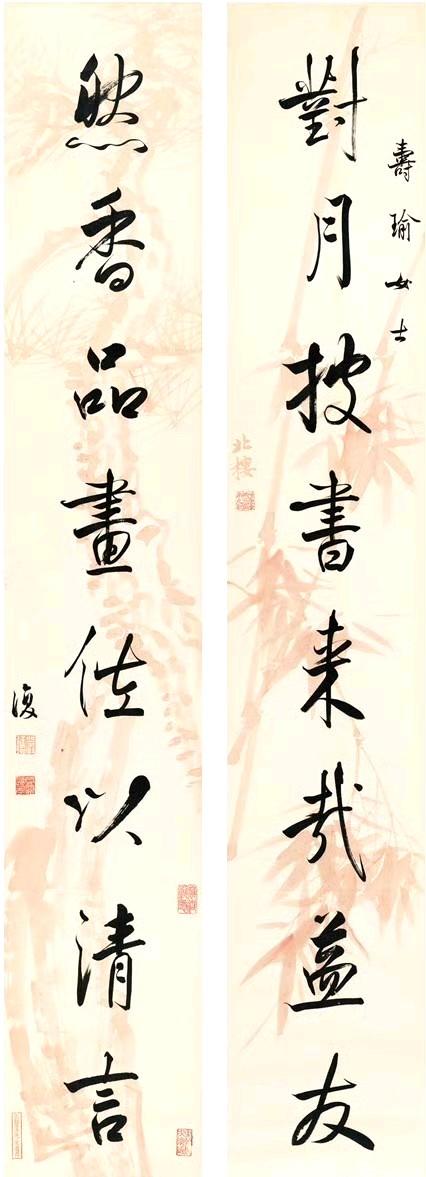 壽瑜女士
對月披書來哉益友
北樓
然香品畫佐以清言
復